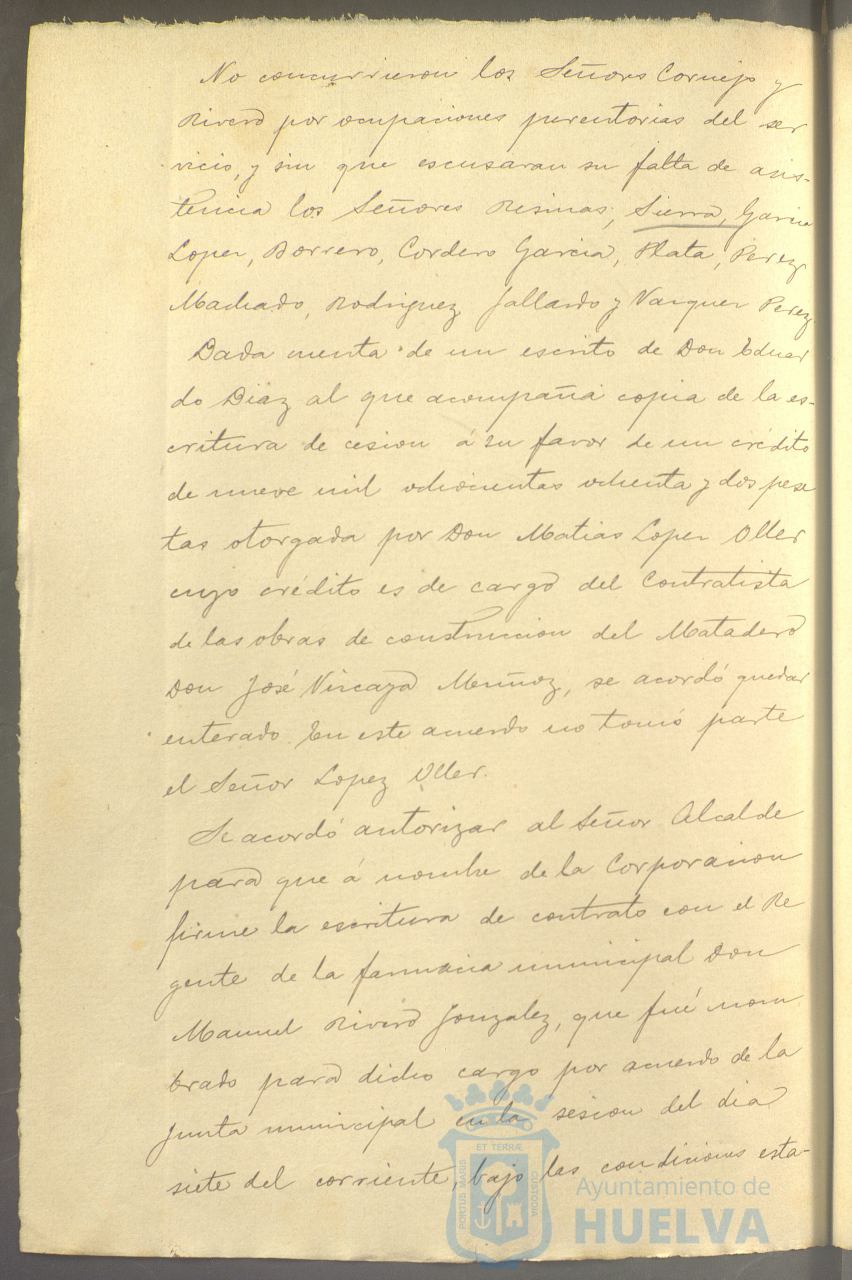 No concurrieron los Señores Cornejo y
Rivero por ocupaciones perentorias del ser
vicio, y sin que escusaran su falta de asis-
tencia los Señores Resinas, Sierra, Garcia
Lopez, Borrero, Cordero Garcia, Plata, Perez
Machado, Rodriguez Gallardo y Vazquez Perez.
Dada cuenta de un escrito de Don Eduar
do Diaz al que acompaña copia de la es-
critura de cesion á su favor de un crédito
de nueve mil ochocientas ochenta y dos pese
tas otorgada por Don Matias Lopez Oller
cuyo crédito es de cargo del Contratista
de las obras de construccion del Matadero
Don José Vizcaya Muñoz, se acordó quedar
enterado. En este acuerdo no tomó parte
el Señor Lopez Oller.
Se acordó autorizar al Señor Alcalde
para que á nombre de la Corporacion
firme la escritura de contrato con el Re
gente de la farmacia municipal Don
Manuel Rivero Gonzalez, que fué nom
brado para dicho cargo por acuerdo de la
Junta municipal en la sesion del dia
siete del corriente, bajo las condiciones esta-
PORTUS MARIS ET TERRÆ CUSTODIA
Ayuntamiento de
HUELVA